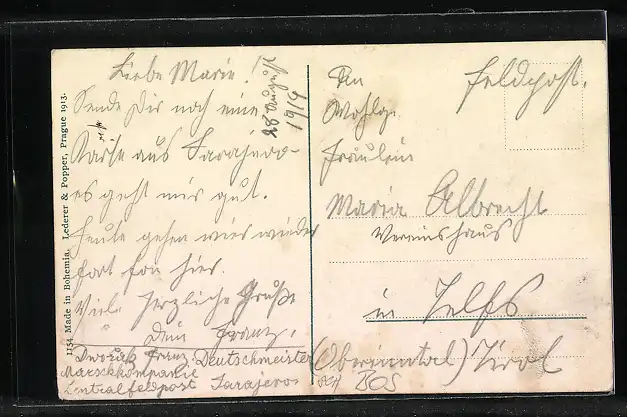 1154 Made in Bohemia. Lederer & Popper, Prague 1913.
Liebe Marie!
28 August
1914
Sende Dir noch eine
Karte aus Sarajevo
es geht mir gut.
Heute gehen wir wieder
fort fon hier.
Viele herzliche Grüße
Dein Franz.
Franz. Deutschmeister
Marschkompanie
Centralfeldpost Sarajevo
Feldpost.
An
Wohlge.
Fräulein
Maria Albrecht
Vereinshaus
in Telfs
(Oberinntal) Tirol
BOS